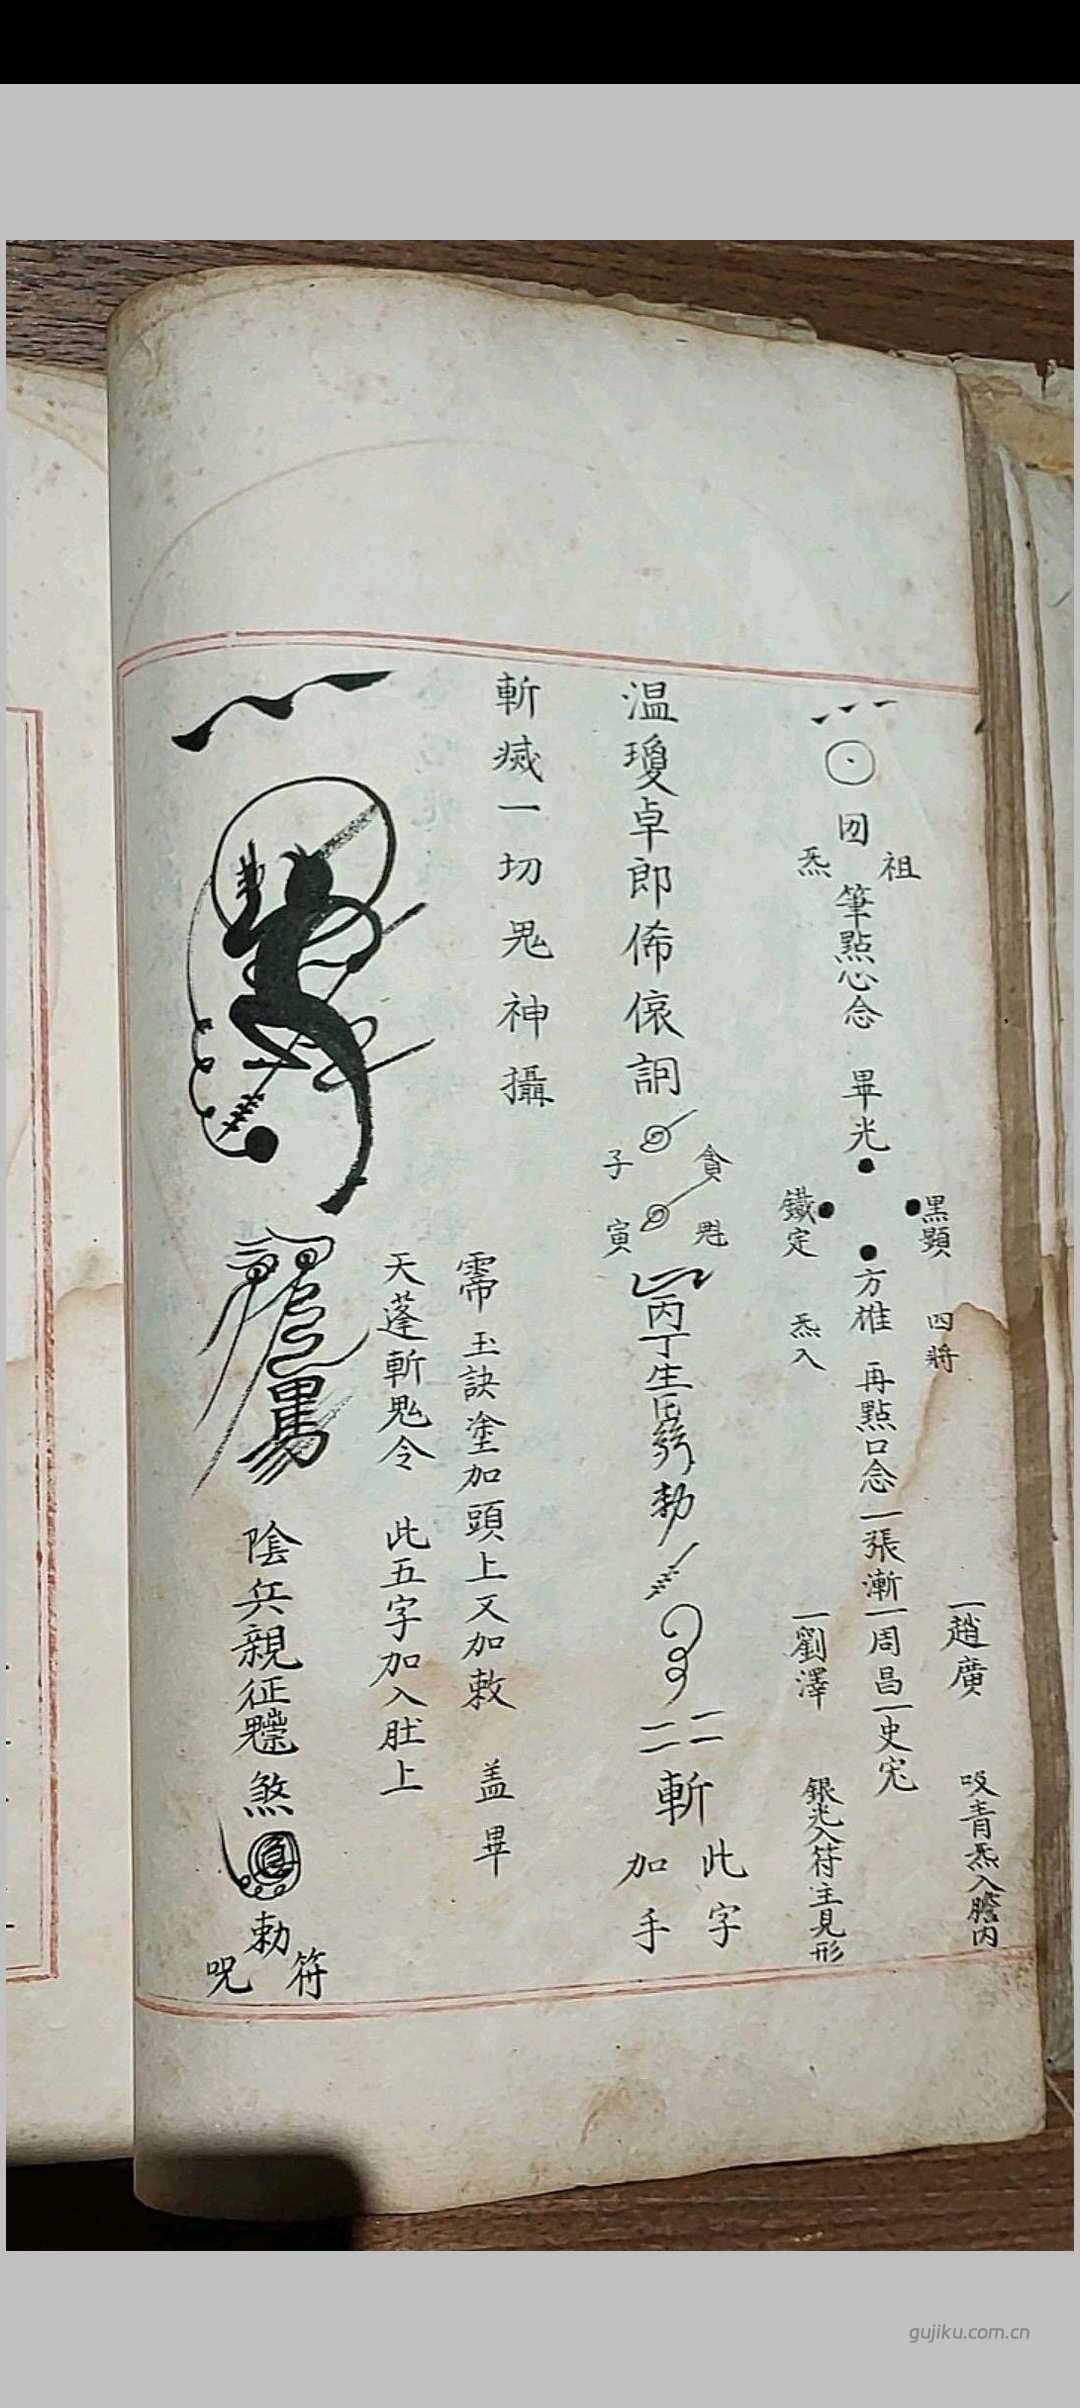 囫
祖炁
筆點心念
畢光
黑顕
鐵定
方雄
四將
炁入
再點口念一張漸一周昌一史
一趙廣
一劉澤
吸青炁入膽内
銀光入符主見形
温瓊卓郎
貪子
魁寅
丙丁生
勅
斬
此字
加手
斬滅一切鬼神攝
玉訣塗加頭上又加敕
盖畢
天蓬斬鬼令
此五字加入肚上
陰兵親征
煞
勅
符
呪
gujiku.com.cn